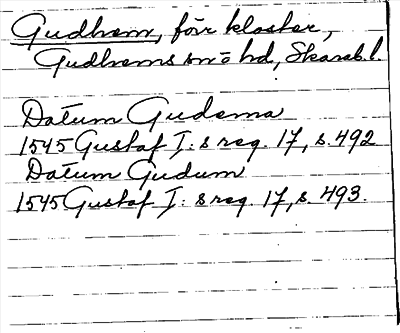 Gudhem, förr kloster,
Gudhems sn o hd, Skarab.l.
Datum Gudema
1545 Gustaf I:s reg. 17, s. 492
Datum Gudum
1545 Gustaf I:s reg. 17, s. 493.